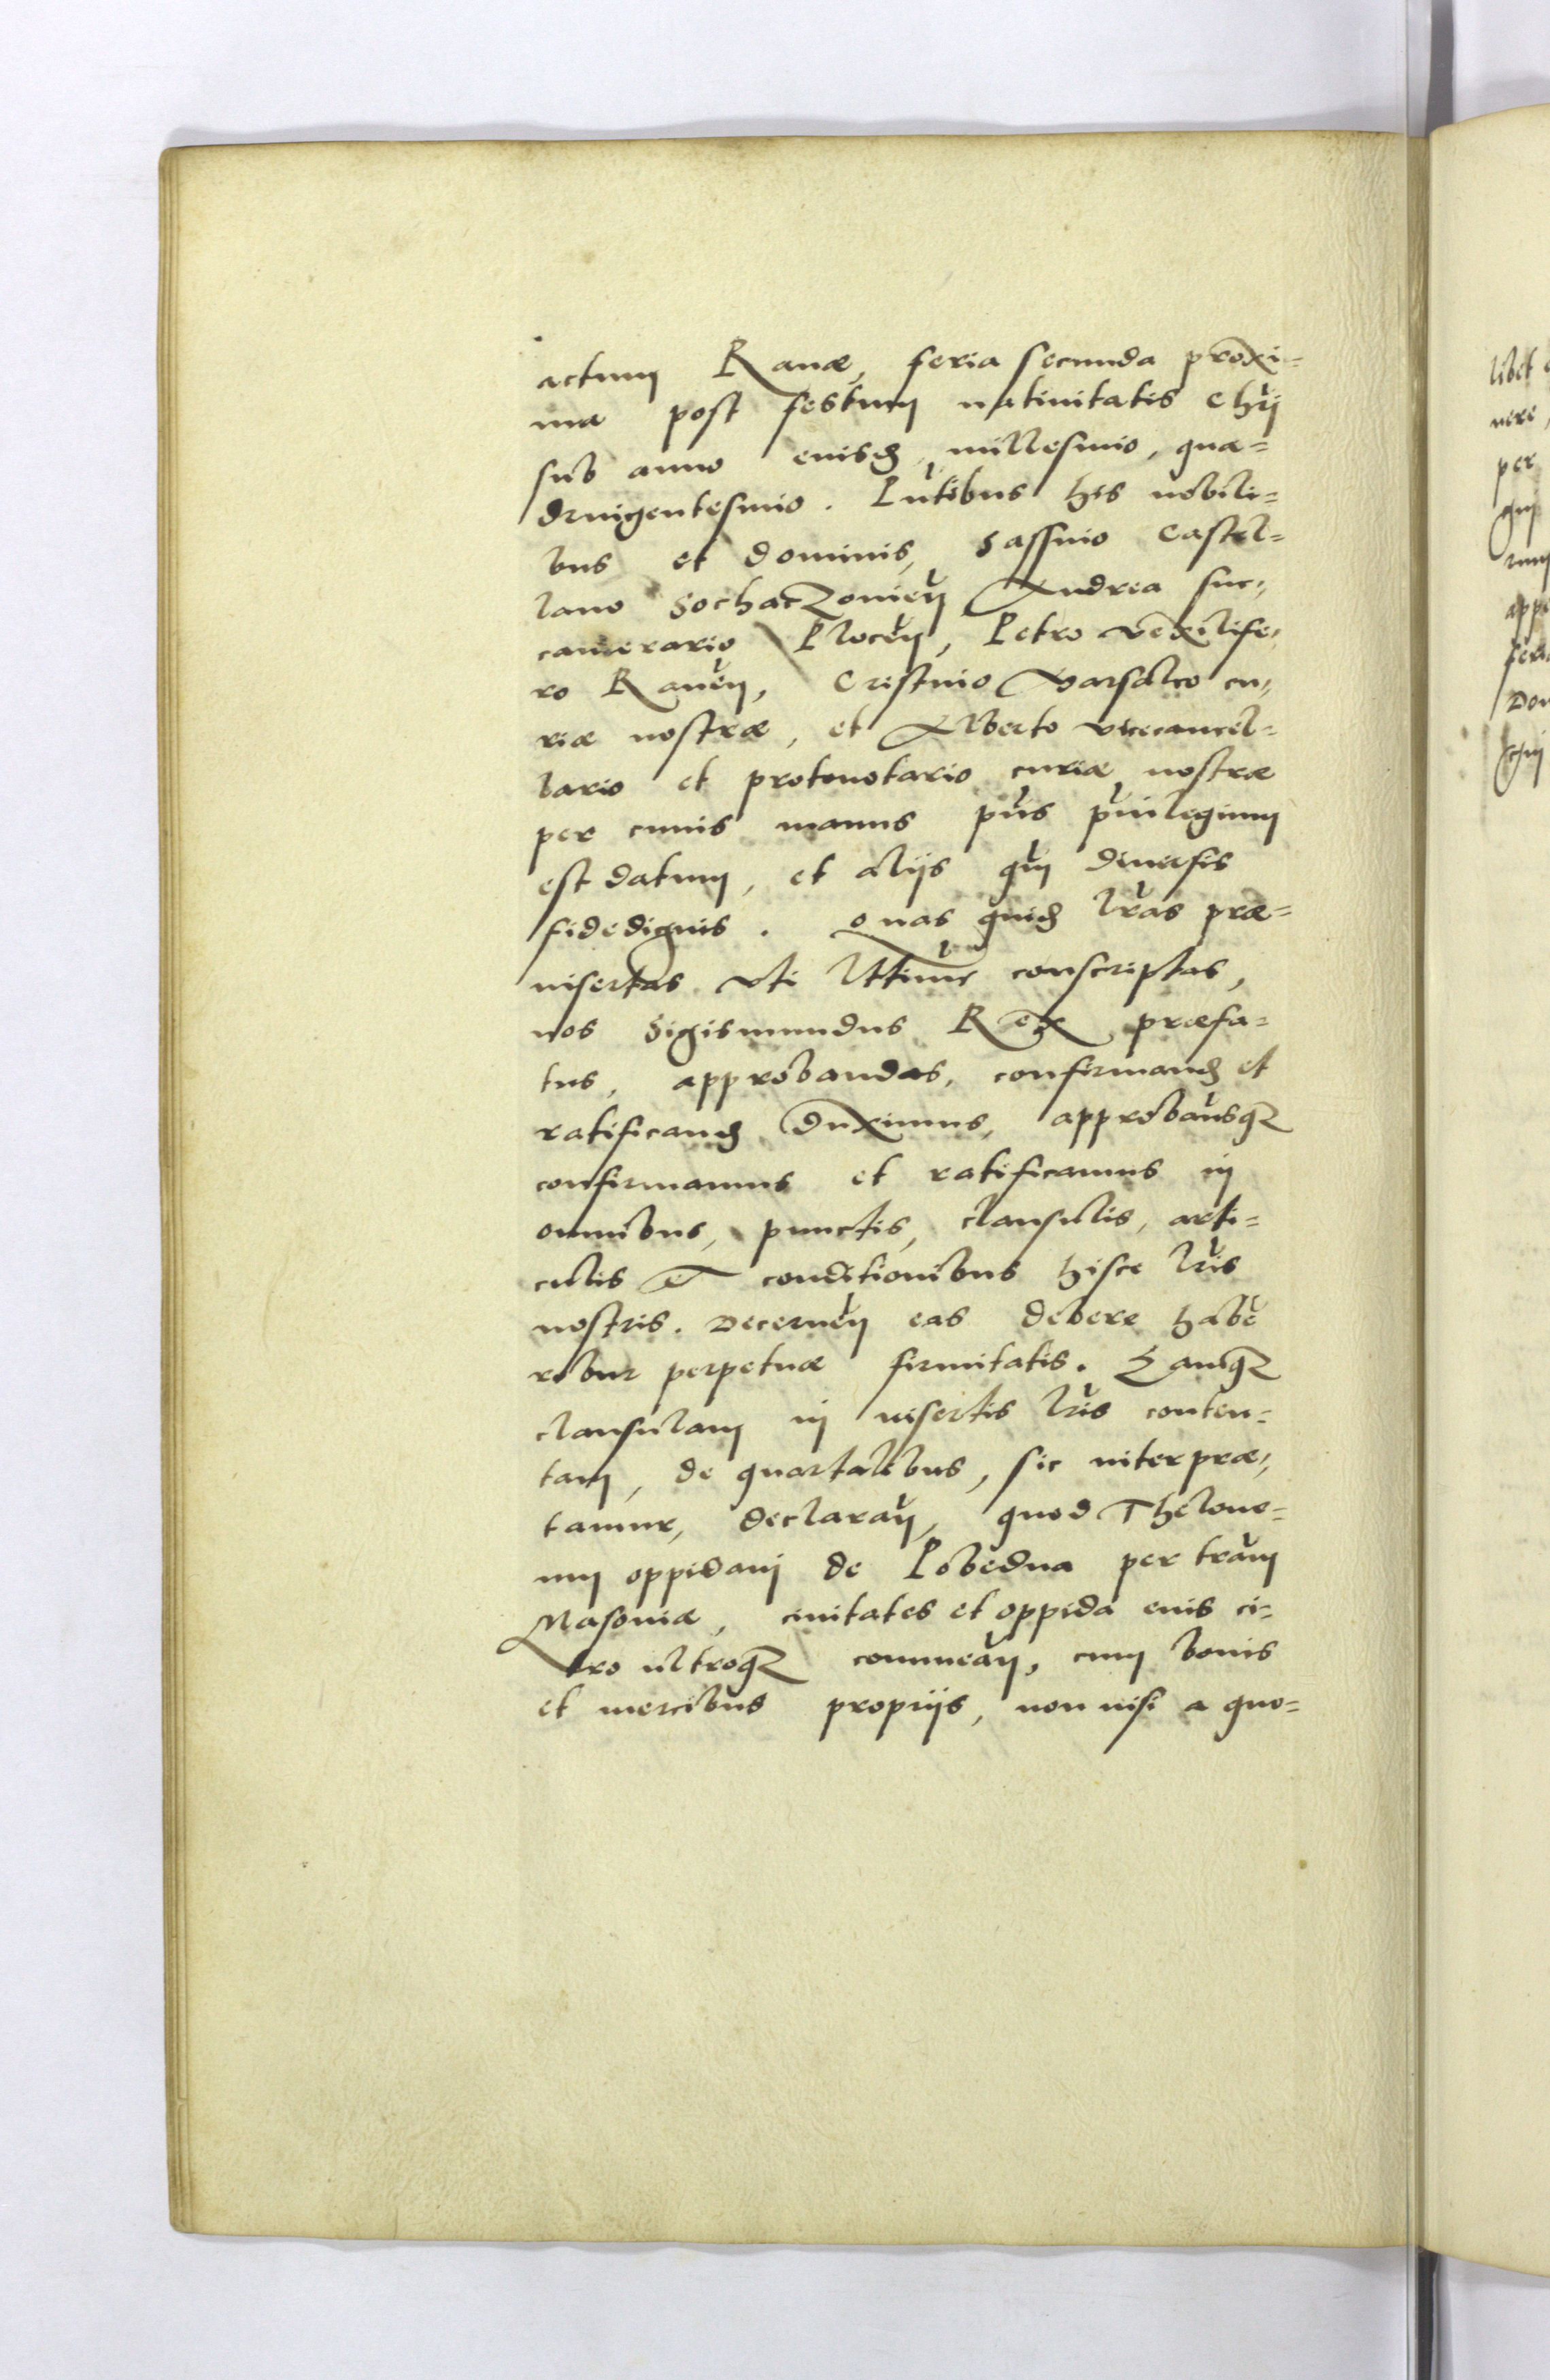 actum Rauæ, feria secunda proxi-
ma post festum natiuitatis Chrỹ
sub anno eiusd millesimo, qua-
dringentesimo. Pñtibus his nobili-
bus et dominis, Sassino Castel-
lano Sochaczouień Andrea suc-
camerario Plocen, Petro vexilife-
ro Rauen, Cristino Marsalco cu-
riæ nostræ, et Alberto vicecancel-
lario et protonotario curiæ nostræ
per cuius manus pns priuilegium
est datum, et alijs qm diuersis
fidedignis. Quas quid lras præ-
insertas vti lttime conscriptas,
nos Sigismundus Rex præfa-
tus, approbandas, confirmand et
ratificand duximus, approbausq3
confirmamus et ratificamus in
omnibus, punctis, clausulis, arti-
culis et conditionibus hisce lris
nostris. Decernen eas debere habe
robur perpetuæ firmitatis. Eamq3
clausulam in insertis lris conten-
tam, de quartalibus, sic interpræ-
tamur, declaran, quod Thelone-
um oppidani de Lobedna per tram
Masoniæ, ciuitates et oppida eius ci-
tro ultroq3 commean, cum bonis
et mercibus proprijs, non nisi a quo-
libet
nere,
per